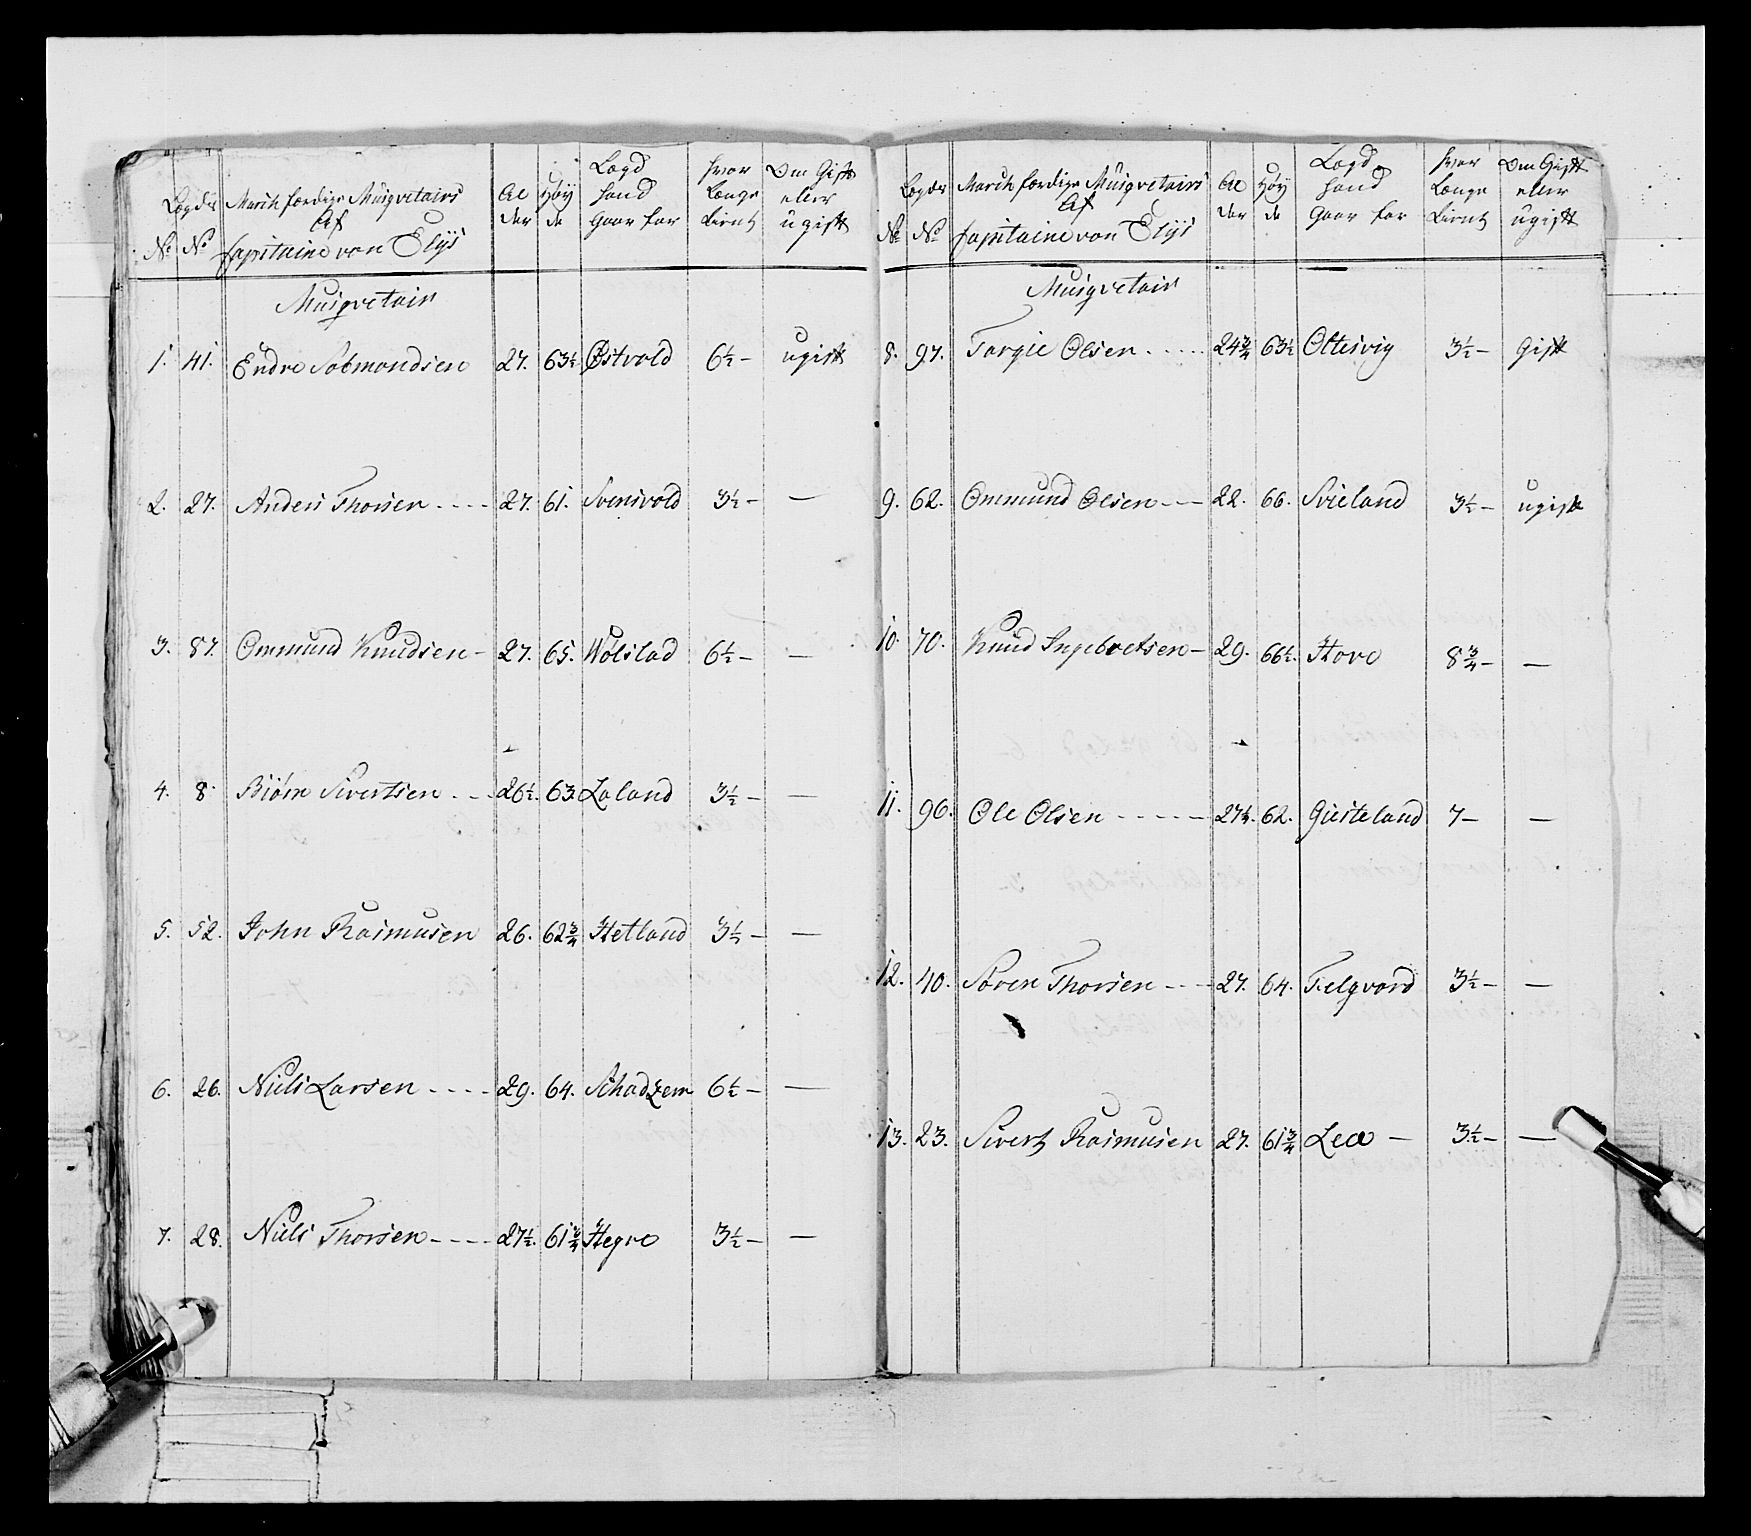 No Legdes No March færdige Musqvetairs Af Capitaine von Elys Al der Høy de Legd hand Gaar for hvor Længe tient Om Gift eller ugift
Musqvetair
1. 41. Endre Sølmondsen 27. 63½ Østvold 6½ – ugift
2. 27. Anders Thorsen 27. 61. Svensvold 3½ – —
3. 87. Ommund Knudsen – 27. 65. Wølstad 6½ – —
4. 8. Biørn Sivertsen 26½. 63. Laland 3½ – —
5. 52. John Rasmusen 26. 62¾ Hetland 3½ – —
6. 26. Niels Larsen 29. 64. Schadzem 6½ – —
7. 28. Niels Thorsen 27½. 61¾ Hegre 3½ – —
No Legdes No March færdige Musqvetairs Af Capitaine von Elys Al der Høy de Legd hand Gaar for hvor Længe tient Om Gift eller ugift
Musqvetair
8. 97. Torgie Olsen 24¾ 63½ Oltesvig 3½ – Gift
9. 62. Ommund Olsen 22. 66. Svieland 3½ – ugift
10. 70. Knud Ingebretsen – 29. 66½. Hove 8¾ – —
11. 96. Ole Olsen 27½. 62. Giesteland 7 – —
12. 40. Søren Thorsen 27. 64. Tielgvord 3½ – —
13. 23. Sivert Rasmusen 27. 61¾ Lea – 3½ – —